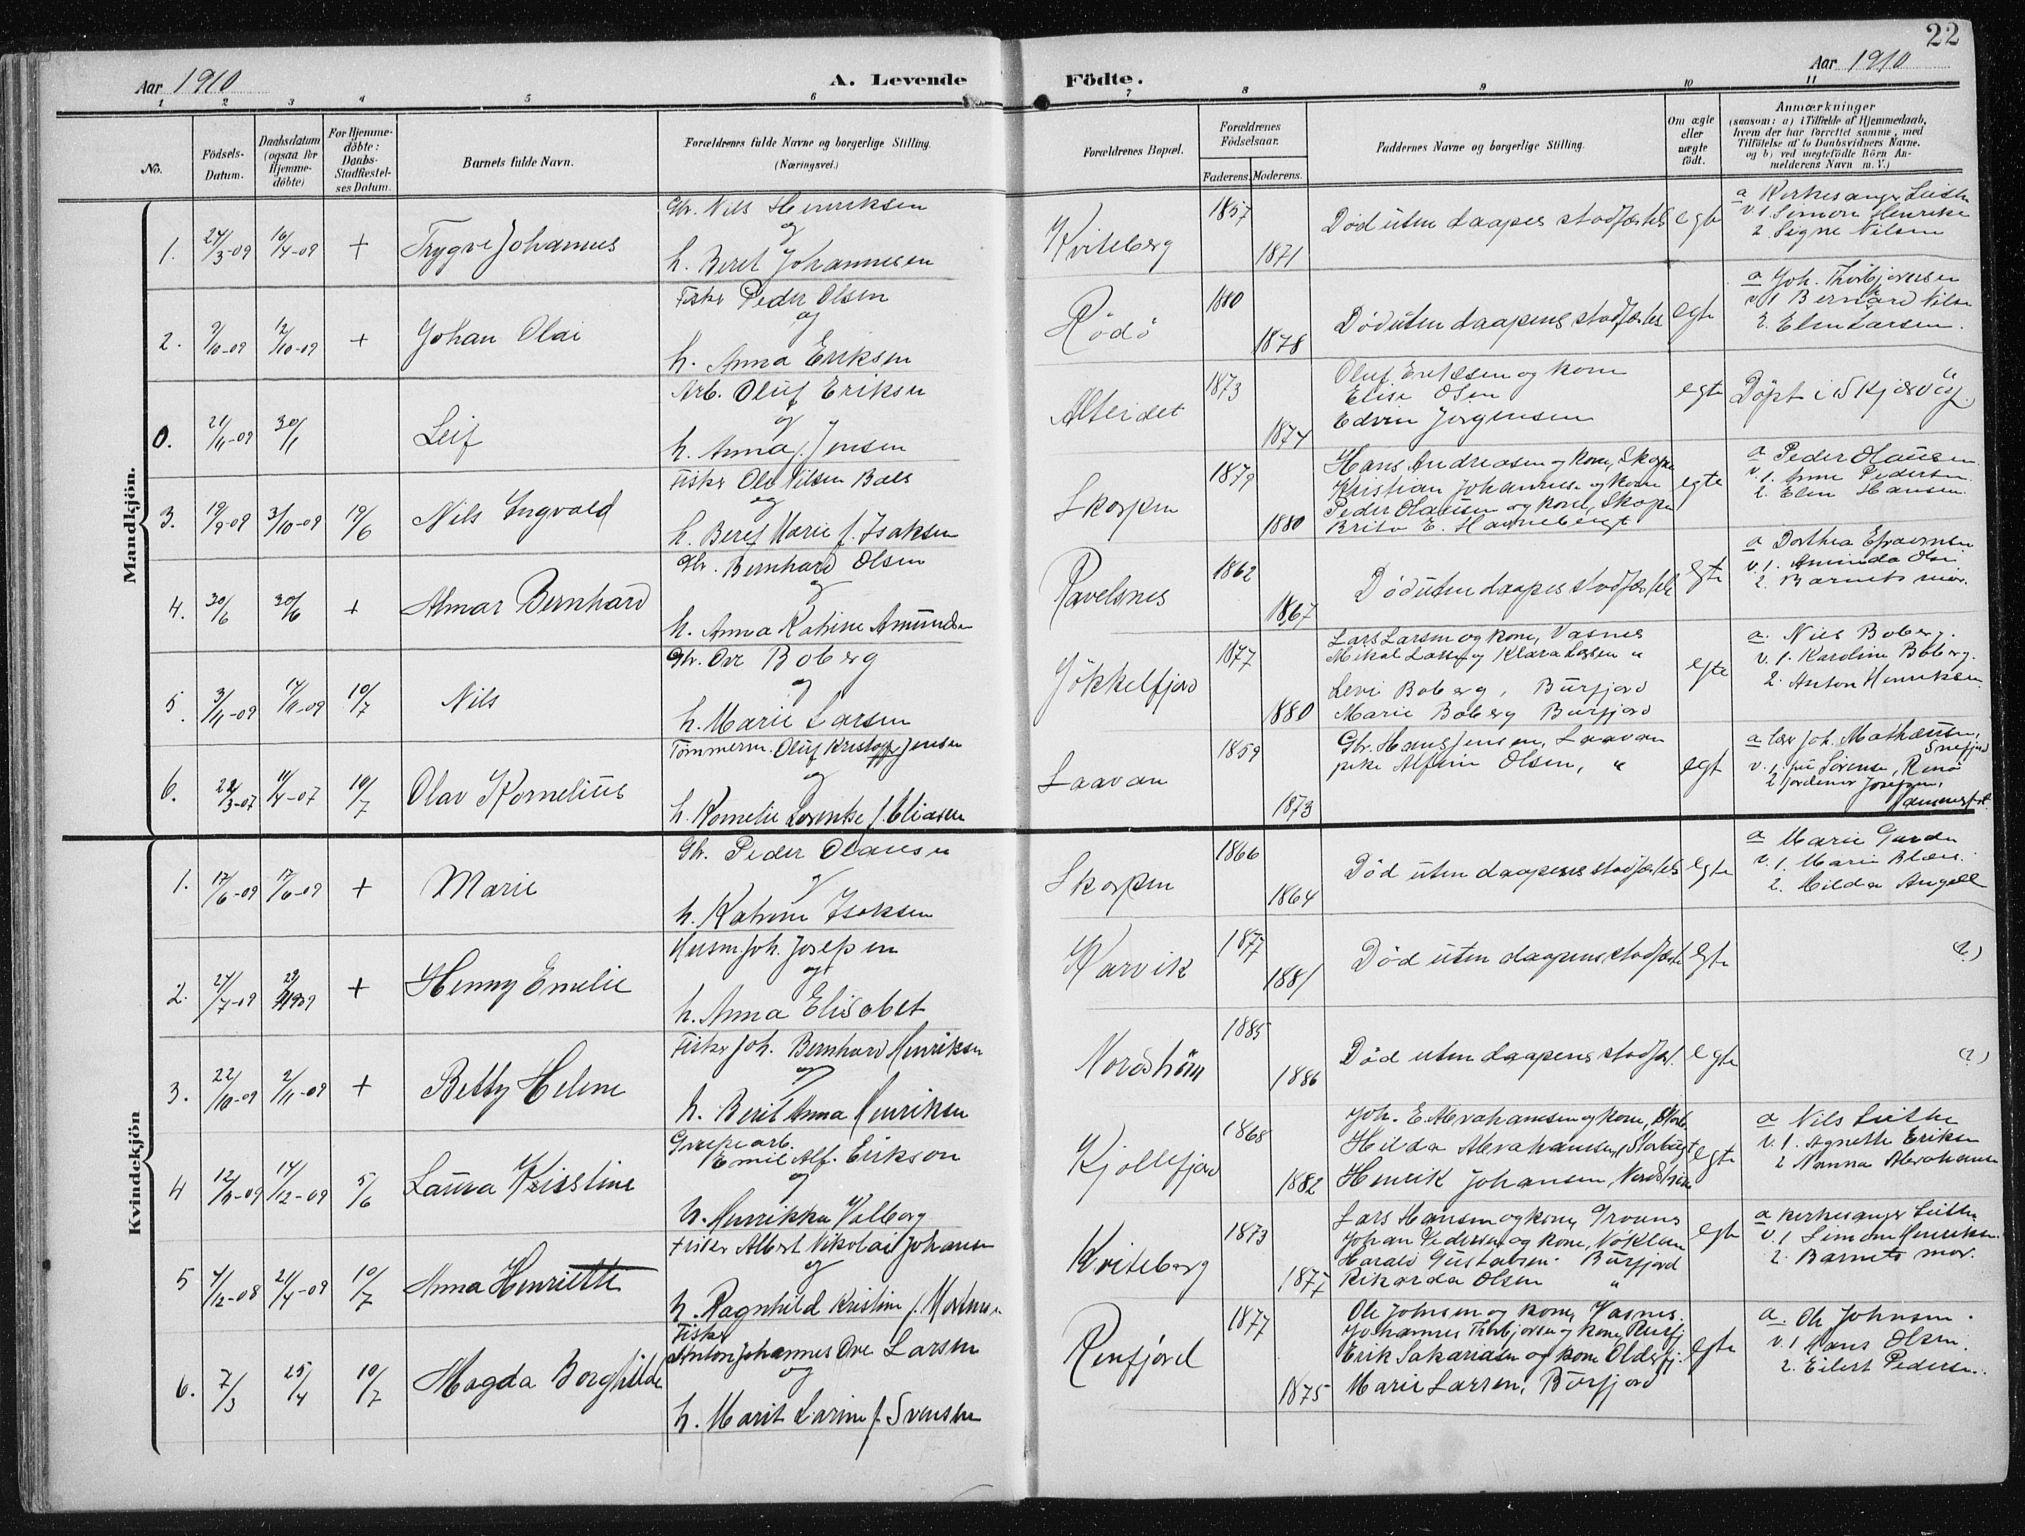 22
Aar 1910
A. Levende
Födte.
Aar 1910
1 2 3 4 5 6 7 8 9 10 11
No.
Födsels-
Datum.
Daabsdatum
(ogsaa for
Hjemme-
döbte)
For Hjemme-
döbte:
Daabs-
Stadfæstel-
ses Datum.
Barnets fulde Navn.
Forældrenes fulde Navne og borgerlige Stilling.
(Næringsvei.)
Forældrenes Bopæl.
Forældrenes
Födselsaar.
Faderens. Moderens.
Faddernes Navne og borgerlige Stilling.
Om ægte
eller
uægte
födt.
Anmærkninger
(saasom: a) i Tilfælde af Hjemmedaab,
hvem der har forrettet samme, med
Tilföielse af to Daabsvidners Navne.
og b) ved uegtefödte Börn An-
melderens Navn m. V.)
Mandkjön.
1. 24/3-09 16/4-09 + Trygve Johannes
Gbr. Nils Henriksen
og
h. Beret Johannesen
Kviteberg 1857 1871
Död uten daapes stadfæstels egte
a Kirkesanger
v. 1 Simon Henriks
2. Signe Nilsen
2. 9/10-09 12/10-09 + Johan Olai
Fisker Peder Olsen
og
h. Anna Eriksen
Rödö 1880 1878
Död uten daapens stadfæstels egte
a Joh. Thorbjørnsen
v. 1 Bernhard Nilse
2. Elen Larsen.
0. 21/11-09 30/1 Leif
Arb. Oluf Eriksen
og
h. Anna f. Jensen
Alteidet 1873 1874
Oluf Eriksen og kone
Elise Olsen
Edvin Jörgensen
egte Döpt i Skjærvöy.
3. 19/9-09 3/10-09 19/6 Nils Ingvald
Fisker Ole Nilsen Bals
og
h. Beret Marie f. Isaksen
Skorpen 1879 1880
Hans Andreasen og kone, Skorpe
Kristian Johannesen og kone
Peder Olausen og kone, Skorpe
Brita E. Havnebergt
egte
a Peder Olausen
v. 1. Anne Pedersen
2. Elen Hansen
4. 30/6 30/6 + Almar Bernhard
Gbr. Bernhard Olsen
og
h. Anna Katrine Amundse
Ravelsnes 1862 1867
Död uten daapes stadfæstels egte
a Dorthea Efraimsen
v. 1. Aminda Olsen
2. Barnets mor.
5. 3/11-09 14/11-09 10/7 Nils
Gbr. Ove Boberg
og
h. Marie Larsen
Jökkelfjord 1877 1880
Lars Larsen og kone, Vasnes
Mikal Larsen og Klara Larsen "
Levi Boberg, Burfjord
Marie Boberg Burfjord
egte
a. Nils Boberg.
v. 1. Karoline Boberg.
2. Anton Henriksen.
6. 22/3-07 14/4-07 10/7 Olav Kornelius
Tömmerm. Oluf Kristoff Jensen
og
h. Kornelie Lorentse f. Eliasen
Laavan 1859 1873
Gbr. Hans Jensen, Laavan
pike Alfine Olsen, "
egt
a Lær Joh. Mathæusen,
Snefjord
v. 1. Sörense, Renö
2 Jordemor Josefsen,
Kvindekjön
1. 17/6-09 17/6-09 + Marie
Gbr. Peder Olausen
og
h. Katrine Isaksen
Skorpen 1866 1864
Död uten daapens stadfæstels egte
a Marie
v. 1. Marie
2. Hilda Angell
2. 24/7-09 + Henny Emelie
Husm. Joh. Josefsen
og
h. Anna Elisabet
Karvik 1877 1881
Död uten daapens stadfæste egte (?)
3. 22/10-09 2/11-09 + Betty Helene
Fisker Joh. Bernhard Henriksen
og
h. Berit Anna Henriksen
Nordströn 1885 1886
Död uten daapens stadfæst. egte (?)
4 12/9-09 14/12-09 5/6 Laura Kristine
Grubearb.
Emil Alf. Erikson
og
h. Henrikka Valborg
Kjollefjord 1868 1882
Joh. E. Abrahamsen og kone,
Hilda Abrahamsen, Storbugt
Henrik Johansen,
egte
a Nils
v. 1. Agnethe Eriksen
2 Nanna Abrahamse
5 4/12-08 21/4-09 10/7 Anna Henriette
Fisker Albert Nikolai Johansen
og
h. Ragnhild Kristine f. Mortense
Kviteberg 1873 1877
Lars Hansen og kone,
Johan Pedersen og kone,
Harald Gustavsen. Burfjord
Rikarda Olsen "
egte
a kirkesanger
v. 1 Simon Henriksen.
2. Barnets mor.
6. 7/3 25/4 10/7 Magda Borghilde
Fisker
Anton Johannes Ove Larsen
og
h. Marit Larine f. Svensen
Renfjord 1877 1875
Ole Johnsen og kone, Vasnes.
Johannes Thorbjørnsen og kone,
Erik Sakariasen og kone Olderfj.
Marie Larsen, Burfjord
egte
a. Ole Johnsen.
v. 1 Hans Olsen.
2. Eilert Pedersen.